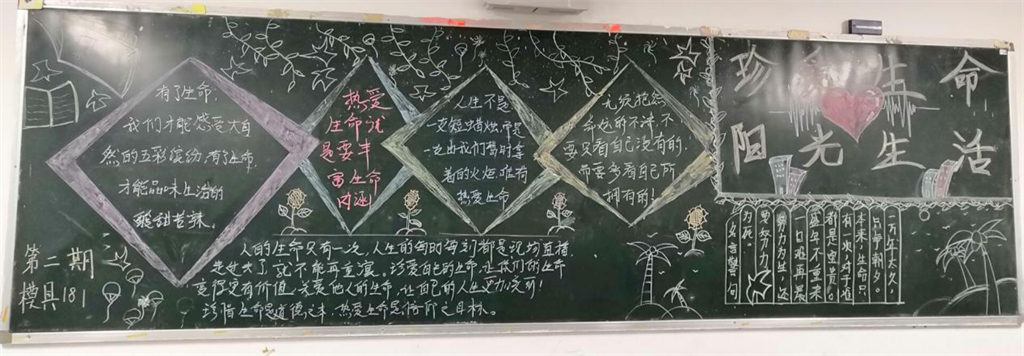 珍爱生命
阳光生活
有了生命,
我们才能感受大自
然的五彩缤纷,有了生命,
才能品味生活的
酸甜苦辣。
热爱
生命就
是要丰
富生命
内涵
人生不是
一支短蜡烛,而是
一支由我们暂时拿
着的火炬,唯有
热爱生命
无须抱怨
命运的不济,不
要只看自己没有的,
而要多看自己所
拥有的!
第二期
模具181
人的生命只有一次,人生的每时每刻都是现场直播
是过去了就不能再重演。珍爱自己的生命,让我们的生命
变得更有价值,关爱他人的生命,让自己的人生更加亮丽!
珍惜生命是道德之本,热爱生命是
之目标。
一万年太久,
只争朝夕。
本来,生命只
有一次,对于谁
都是宝贵的。
盛年不重来
一日难再晨
努力为生,还
要努力
为死。
名言警句